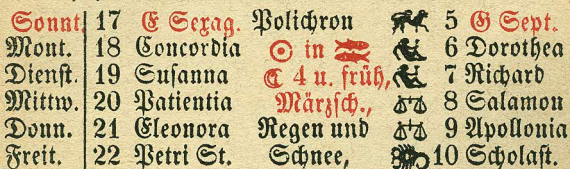 Sonnt. 17 E Sexag. Polichron 5 G Sept.
Mont. 18 Concordia ☉ in ♓ 6 Dorothea
Dienst. 19 Susanna ☾ 4 u. früh, 7 Richard
Mittw. 20 Patientia Märzsch., 8 Salamon
Donn. 21 Eleonora Regen und 9 Apollonia
Freit. 22 Petri St. Schnee, 10 Scholast.